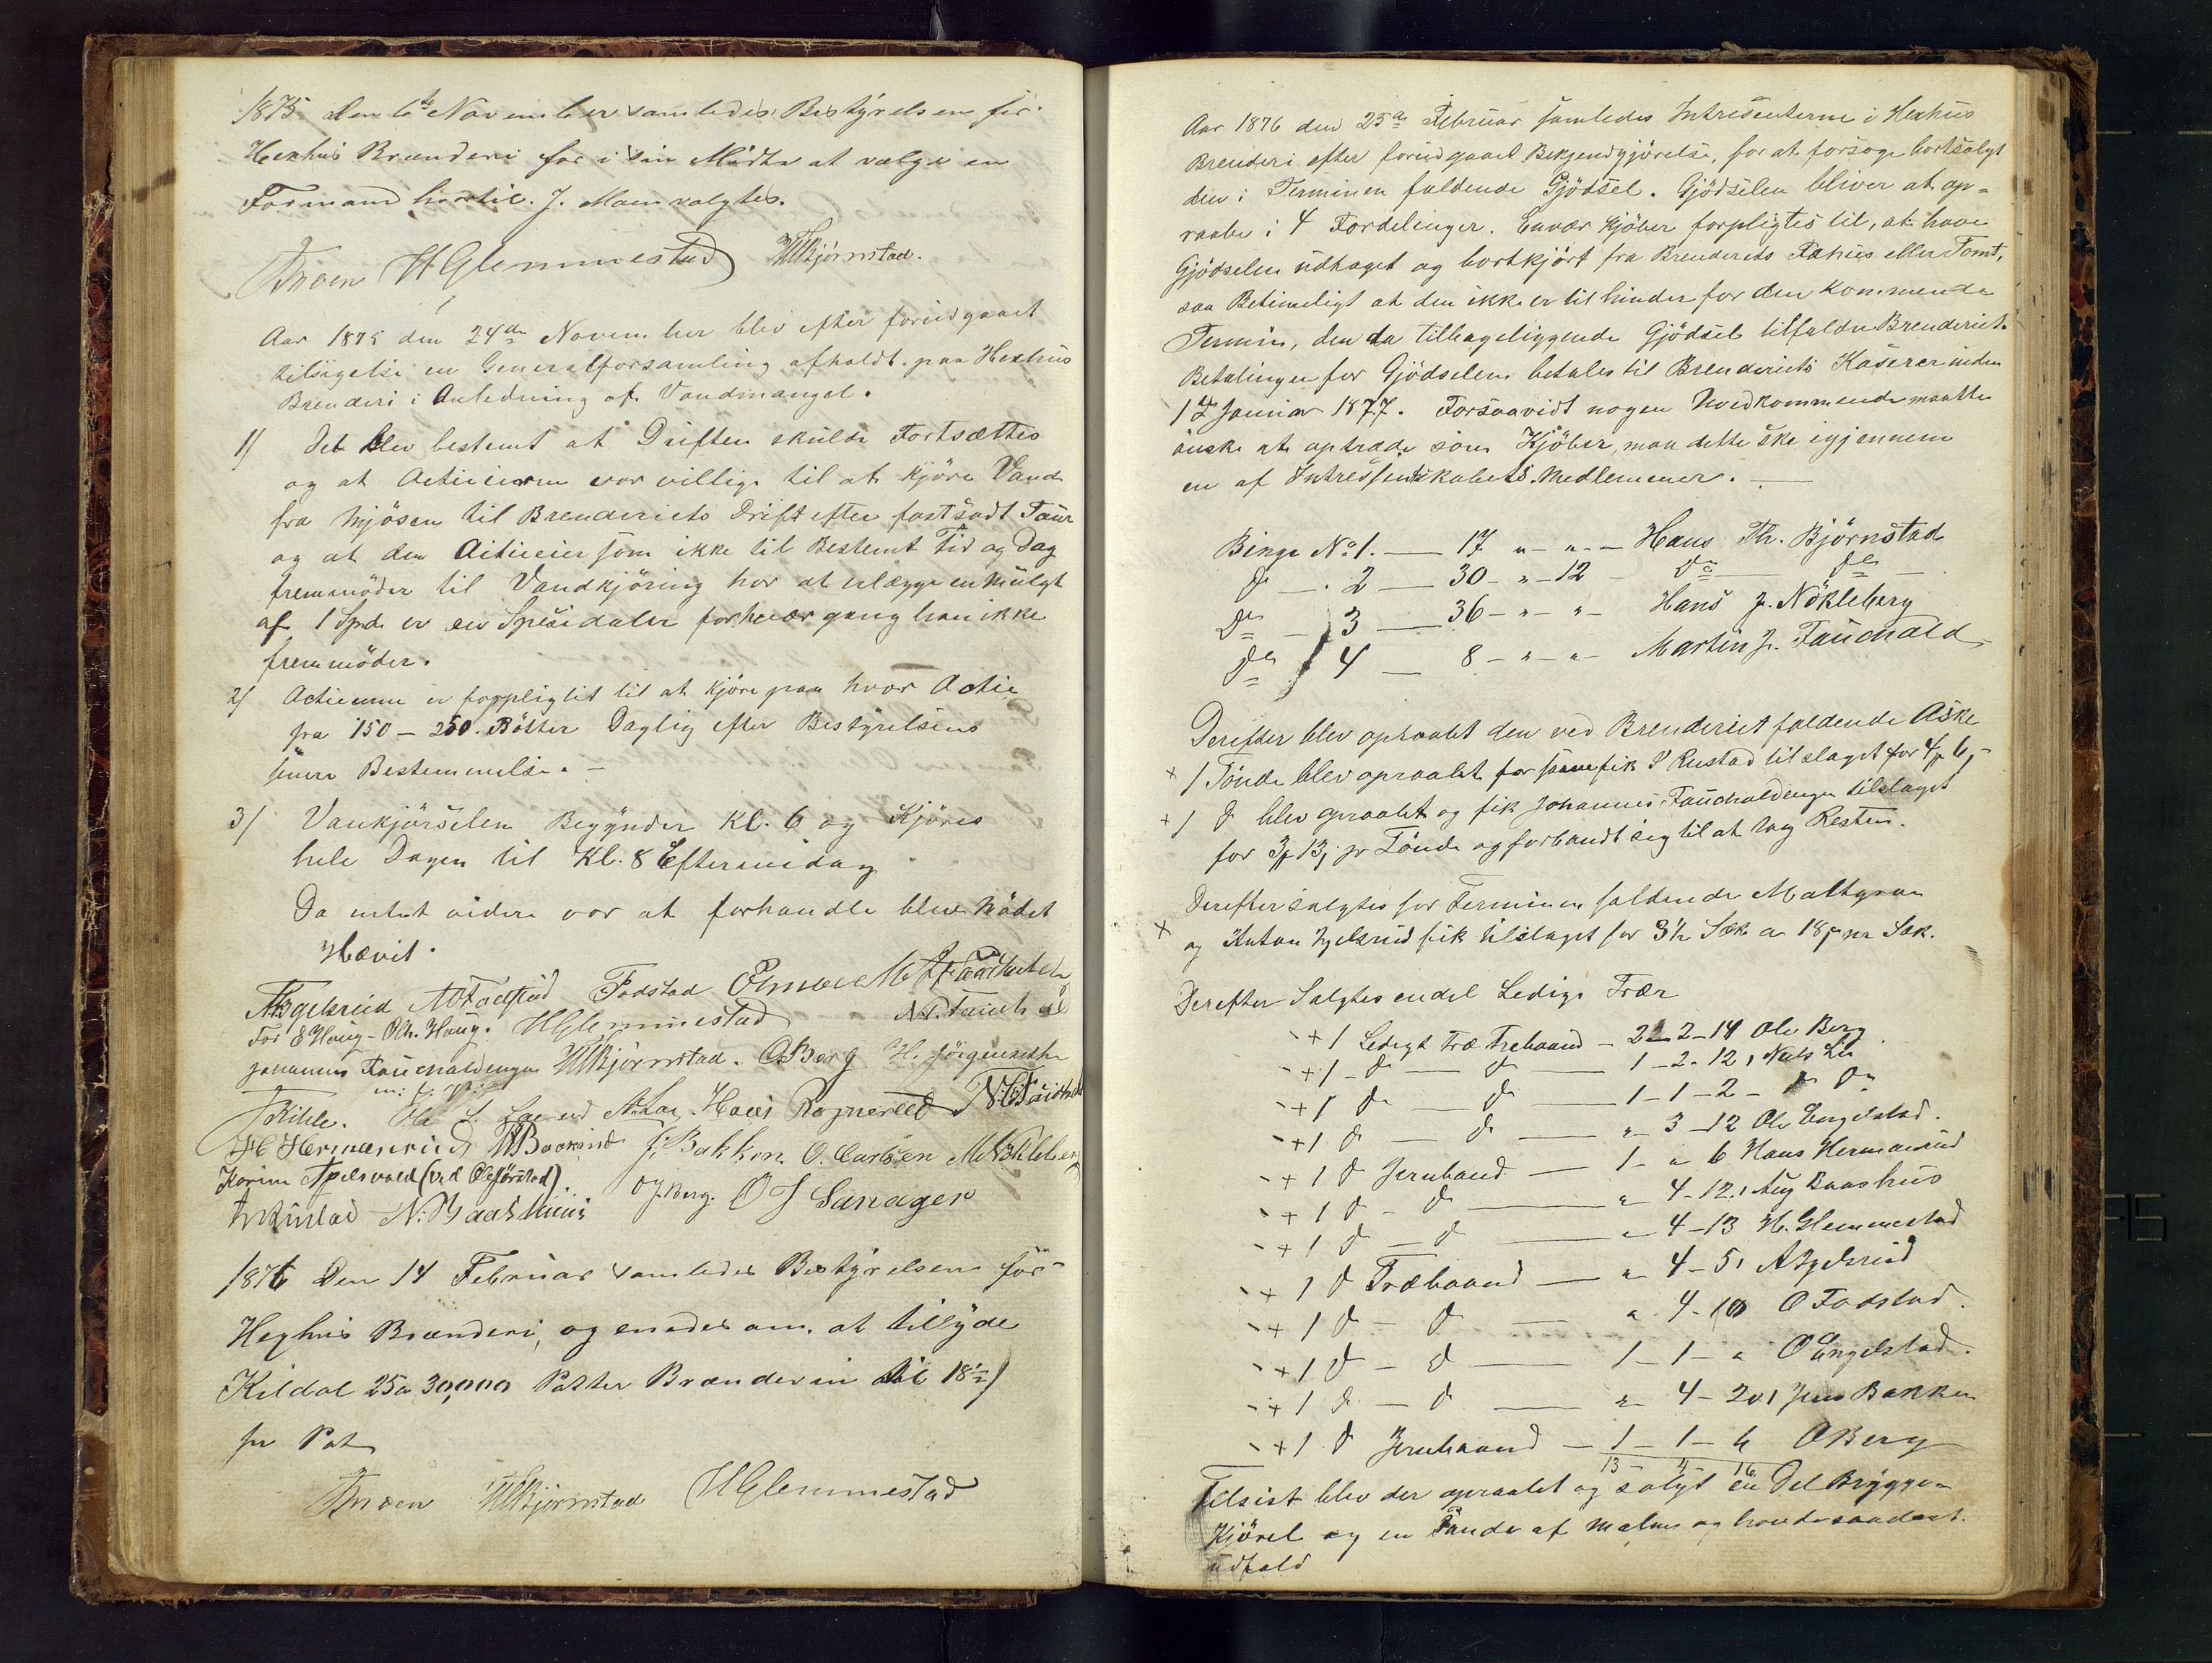 1875 den 6te November samledes Bestÿrelsen för
Hexhus Brænderi for i sin Midte at vælge en
Formand hvortil J. Moen valgtes.
JMoen HGlemmestad HBjörnstad.
Aar 1875 den 24de November blev efter forudgaaet
tilsigelse en Generalforsamling afholdt paa Hexhus
Brænderi i Anledning af Vandmangel.
1/ Det blev bestemt at Driften skulde Fortsættes
og at Actieierne var villige til at kjöre Vand
fra Mjösen til Brenderiets Drift efter fastsadt Tour
og at den Actieeier som ikke til Bestemt Tid og Dag
fremmöder til Vandkjöring har at erlægge en Mulgt
af 1 Spd. er en Spesidaler for hver gang han ikke
fremmöder.
2/ Actierne er forpligtet til at kjöre paa hvor Actie
fra 150 – 250 Bötter Daglig efter Bestÿrelsens
senere Bestemmelse. –
3/ Vankjörselen Begÿnder Kl. 6 og Kjöres
hele Dagen til Kl. 8 Eftermidag
Da intet videre var at forhandle blev Mödet
Hævit.
ABgelsrud Fodstad
For E Haug – Olh. Haug. HGlemmestad
Johannes Fauchaldengen HBjörnstad. OBerg H. Jörgensen
Kihle. Ole L. Hans Rognerud
H Hermanrud J. Bakken O. Carlsen M Nökleberg
Karine Apelsvold (ved
N. Baashuus OJ. Berg. OJ Sanager
1876 Den 14 Februar samledes Bestÿrelsen för
Hexhus Brænderi, og enedes om at tillÿde
Kildal 25 a 30,000 Potter Brændevin til 18½ ʃ
pr Pot
JMoen HBjörnstad HGlemmestad
Aar 1876 den 25de Februar samledes Intresenterne i Hexhus
Brenderi efter forudgaaet Bekjendtgjörelse, for at forsøge bortsolgt
den i Terminen faldende Gjödsel. Gjödselen bliver at op-
raabe i 4 Fordelinger. Envær Kjöber forpligtes til, at have
Gjödselen udtaget og bortkjört fra Brenderiets Fæhus eller Tomt,
saa Betimeligt at den ikke er til hinder for den kommende
Termin, den da tilbageliggende Gjödsel tilfalder Brenderiet.
Betalingen for Gjödselen betales til Brenderiets Kaserer inden
1ste Januar 1877. Forsaavidt nogen Uvedkommende maatte
önske at optræde som Kjöber, maa dette ske igjennem
en af Intressentskabets Medlemmer. —
Binge No 1. — 17 " – " – Hans Th. Björnstad
do — . 2 — 30 – " – 12 – do — do —
do — 3 — 36 – " – " – Hans J. Nökleberg
do 4 — 8 – " – " – Martin J. Fauchald
Derefter blev opraabt den ved Brenderiet faldende Aske
+ 1 Tönde blev opraabt for samme fik Rustad tilslaget for 4
+ 1 do blev opraabt og fik Johannes Fauchaldengen tilslaget
for 3 13 pr Tönde og forbandt sig til at tag Resten.
Derefter solgtes for Terminen faldende Maltgroe
+ og Anton Bgelsrud fik tilslaget for 3½ Sæk a 18 pr Sæk.
Derefter Solgtes endel Ledige Trær
+ 1 Ledigt Træ Trebaand – 2 – 2 – 14 Ole Berg
+ 1 – do — do — 1 – 2 – 12 Niels Lie
+ 1 do — do — 1 – 1 – 2 – do do
+ 1 do — do — " 3 – 12 Ole Engelstad.
+ 1 do Jernbaand — 1 – " 6 Hans Hermanrud
+ 1 do – do — " 4 – 12 Aug Baashus
+ 1 do — do — " 4 – 13 H. Glemmestad
+ 1 do Træbaand — " 4 – 5 ABgelsrud
+ 1 do – do — " 4 – 10 O Fodstad.
+ 1 do – do — 1 – 1 – " O Engelstad.
+ 1 do – do — " 4 – 20 Jens Bakken
+ 1 do Jernbaand — 1 – 1 – 4 OBerg
13 – 4 16
Tilsist blev der opraabt og solgt en Del Brÿgge-
Kjörel og en Pande af Malm og havde saadant
udfald